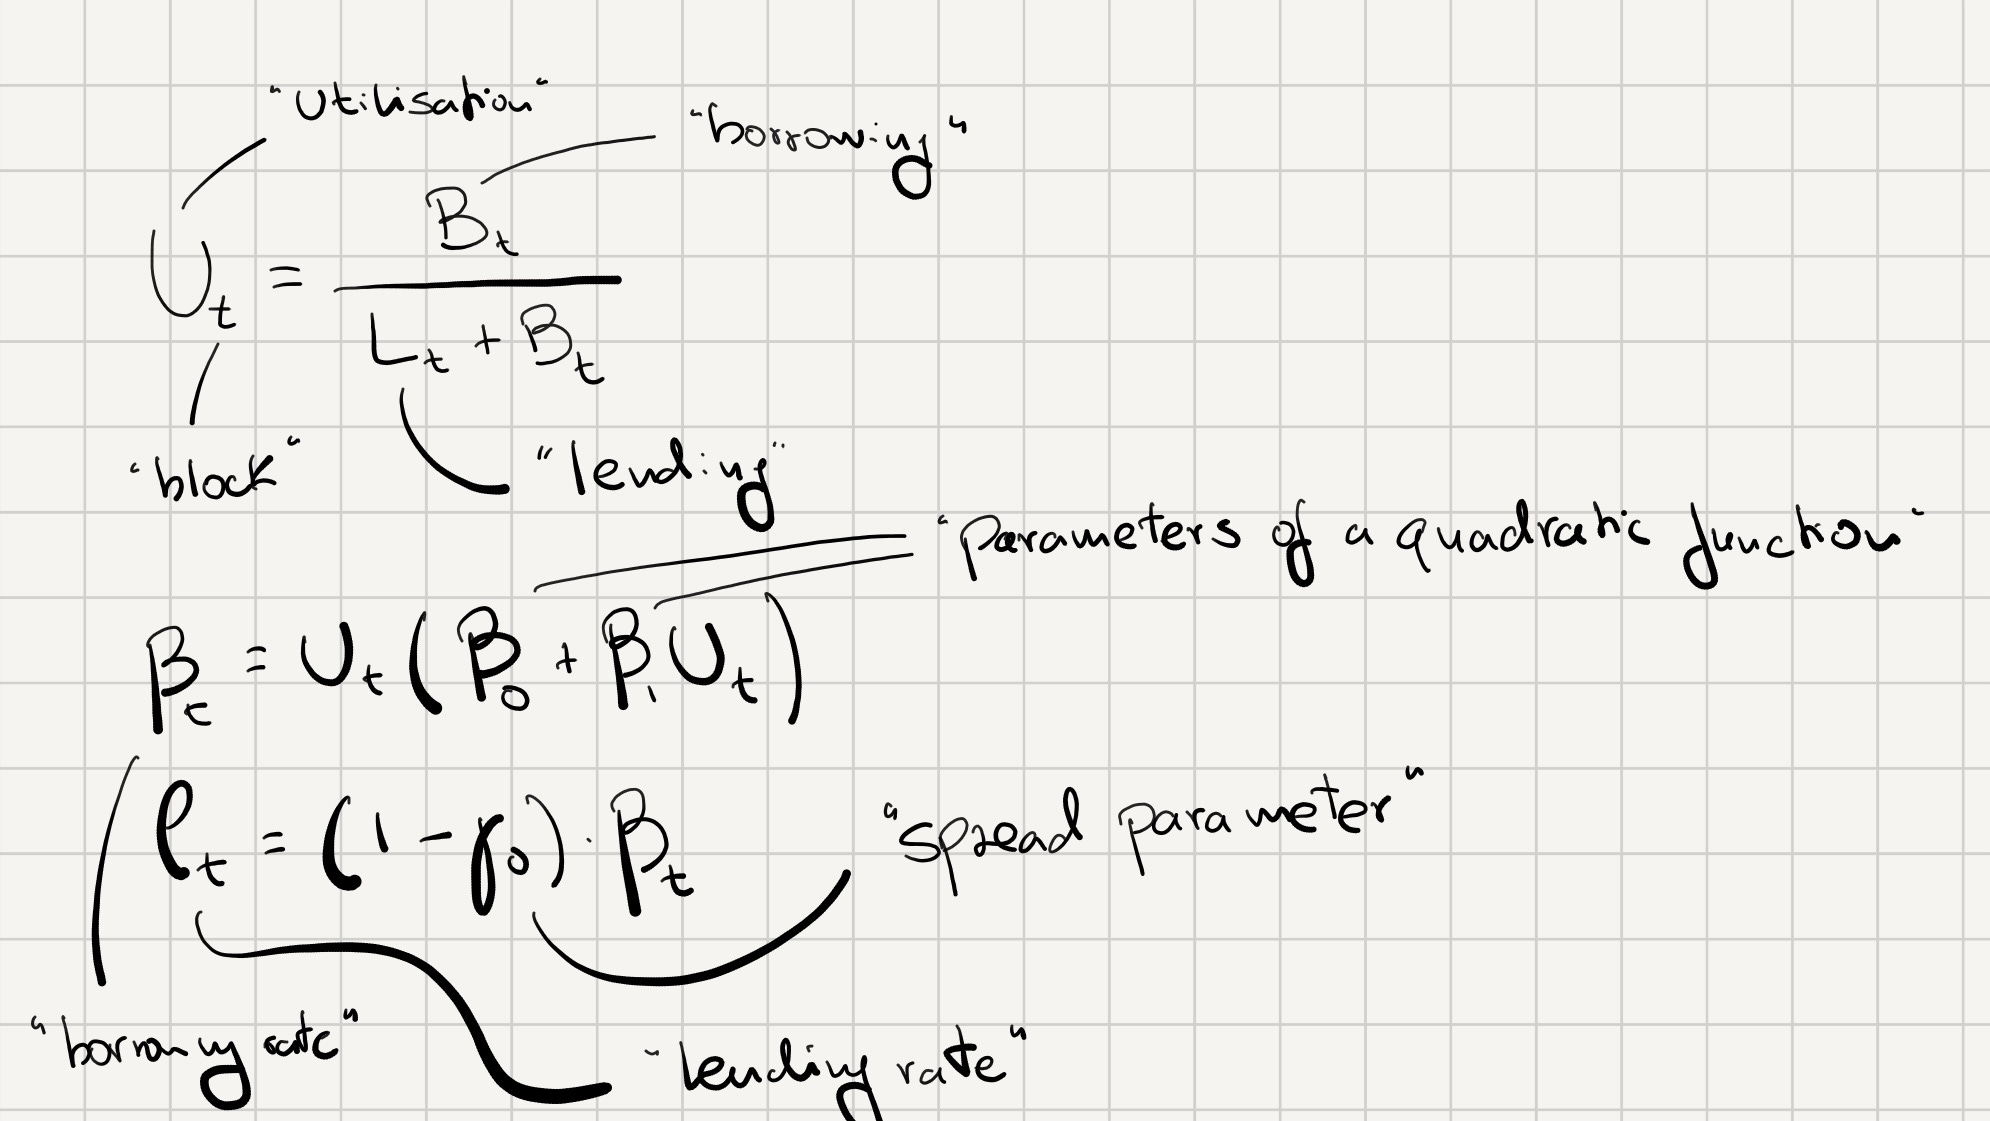 "Utilisation"
"borrowing"
U_t = B_t / (L_t + B_t)
"block"
"lending"
"Parameters of a quadratic function"
β_t = U_t (β_0 + β_1 U_t)
ℓ_t = (1 - γ_0) · β_t
"spread parameter"
"borrowing rate"
"lending rate"